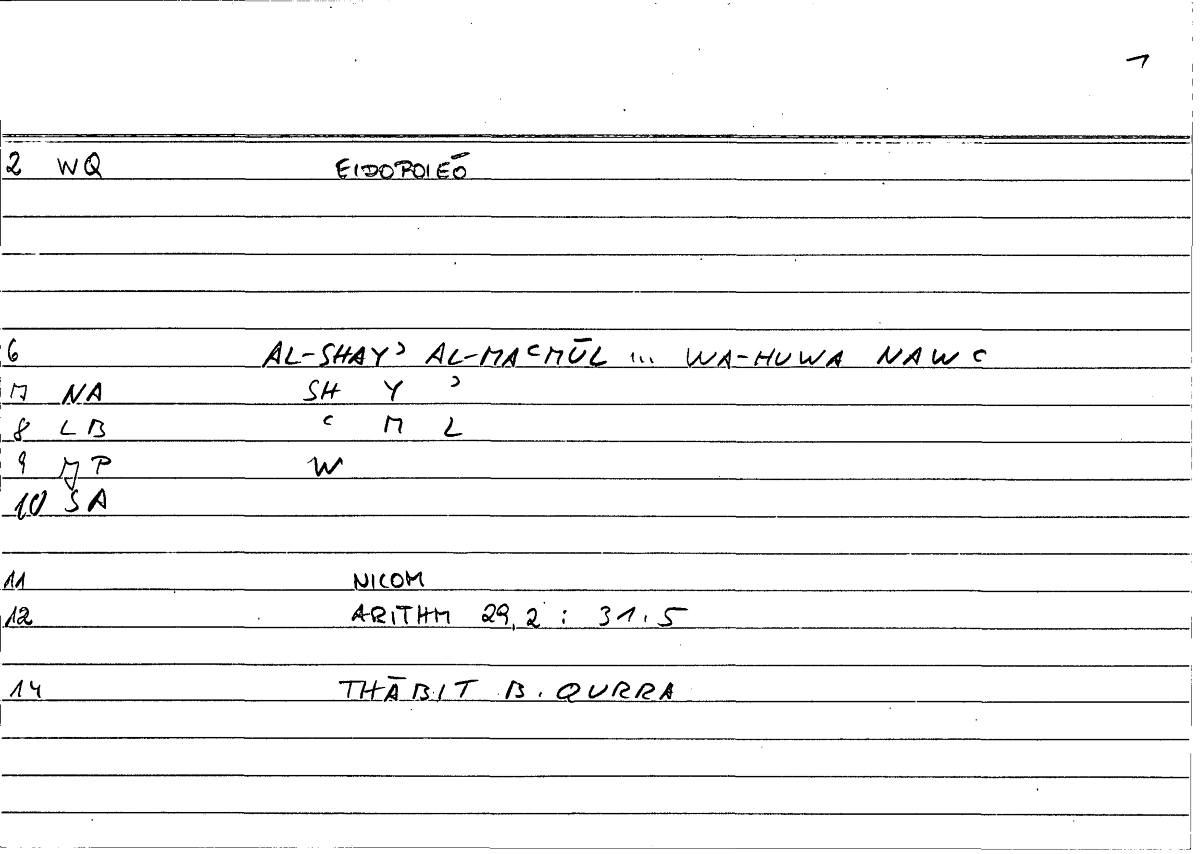 1
2 WQ EIDOPOIEŌ
6 AL-SHAYʾ AL-MAʿMŪL ... WA-HUWA NAWʿ
7 NA SH Y ʾ
8 LB ʿ M L
9 MP W
10 SA
11 NICOM
12 ARITHM 29,2 : 31.5
14 THĀBIT B. QURRA